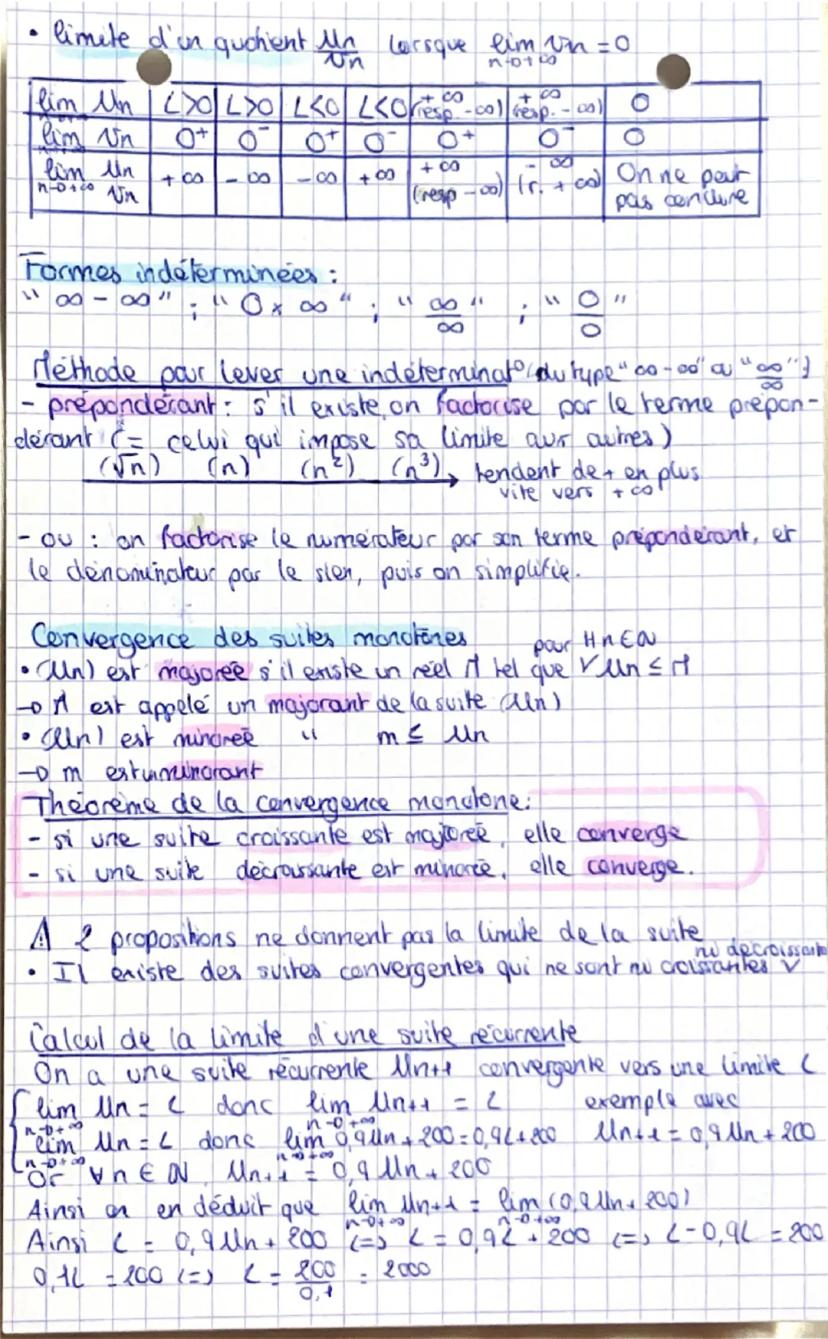 • limite d'un quotient Un/Vn lorsque lim Vn = 0
n→+∞
lim Un | L>0 | L>0 | L<0 | L<0 | +∞ (resp -∞) | +∞ (resp. -∞) | 0
lim Vn | 0+ | 0- | 0+ | 0- | 0+ | 0- | 0
lim Un/Vn n→+∞ | +∞ | -∞ | -∞ | +∞ | +∞ (resp -∞) | -∞ (r. +∞) | On ne peut pas conclure
Formes indéterminées :
" ∞ - ∞ " ; " 0 × ∞ " ; " ∞/∞ " ; " 0/0 "
Méthode pour lever une indéterminat° (du type "∞-∞" ou "∞/∞")
- prépondérant : s'il existe, on factorise par le terme prépon-
dérant (= celui qui impose sa limite aux autres)
(√n) (n) (n²) (n³) → tendent de + en plus
vite vers +∞
- ou : on factorise le numérateur par son terme prépondérant, et
le dénominateur par le sien, puis on simplifie.
Convergence des suites monotones
• (Un) est majorée s'il existe un réel M tel que pour ∀n∈N Un ≤ M
→ M est appelé un majorant de la suite (Un)
• (Un) est minorée " m ≤ Un
→ m est un minorant
Théorème de la convergence monotone :
- si une suite croissante est majorée, elle converge
- si une suite décroissante est minorée, elle converge.
⚠ 2 propositions ne donnent pas la limite de la suite
• Il existe des suites convergentes qui ne sont ni croissantes ni décroissantes
Calcul de la limite d'une suite récurrente
On a une suite récurrente Un+1 convergente vers une limite L
lim Un = L donc lim Un+1 = L exemple avec
n→+∞ n→+∞
lim Un = L donc lim 0,9Un + 200 = 0,9L + 200 Un+1 = 0,9 Un + 200
n→+∞ n→+∞
Or ∀n ∈ N, Un+1 = 0,9 Un + 200
Ainsi on en déduit que lim Un+1 = lim (0,9Un + 200)
n→+∞ n→+∞
Ainsi L = 0,9 Un + 200 <=> L = 0,9L + 200 <=> L - 0,9L = 200
0,1L = 200 <=> L = 200/0,1 = 2000